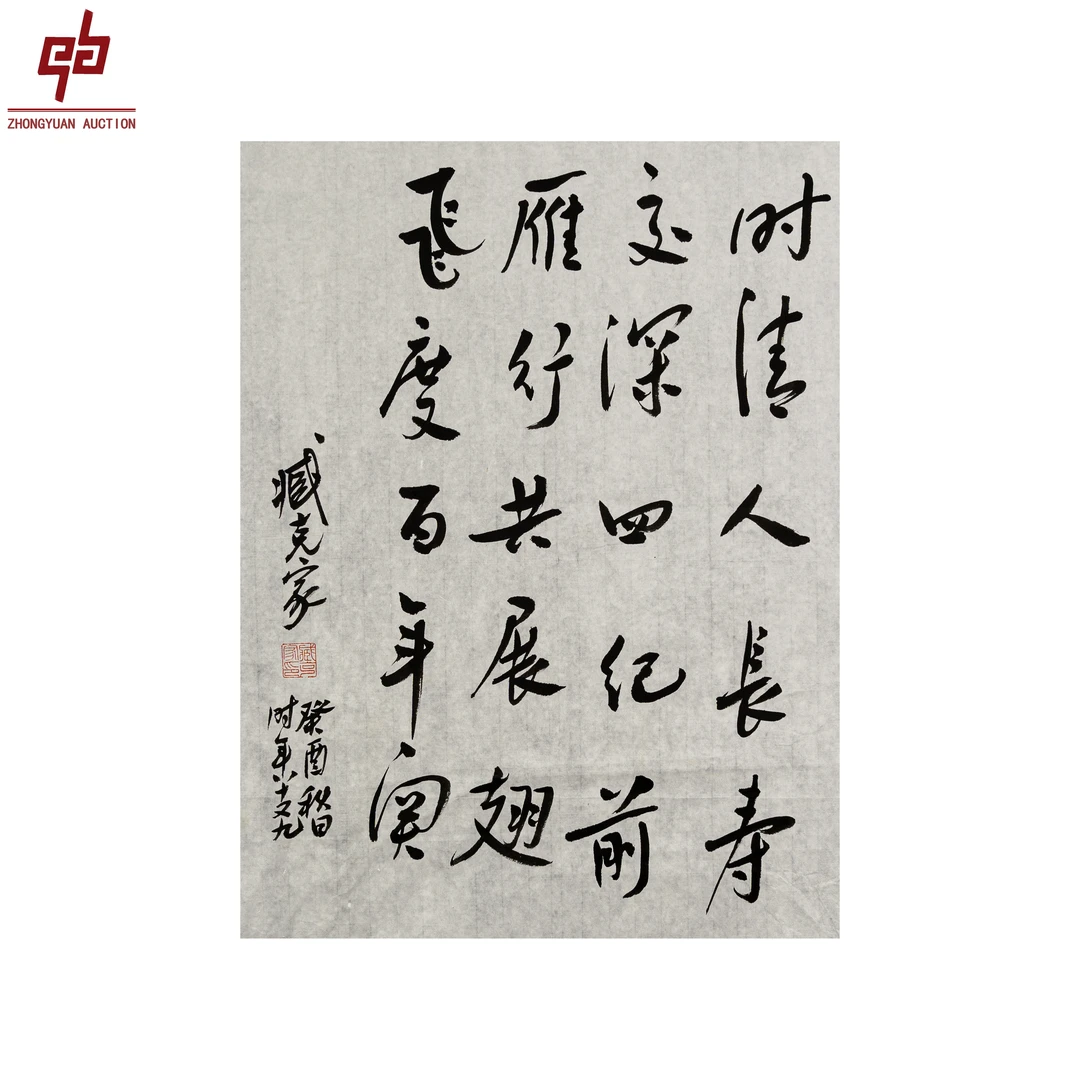 ZHONGYUAN AUCTION
时清人長寿
交深四纪前
雁行共展翅
飞度百年关
臧克家
癸酉秋日
时年八十又九